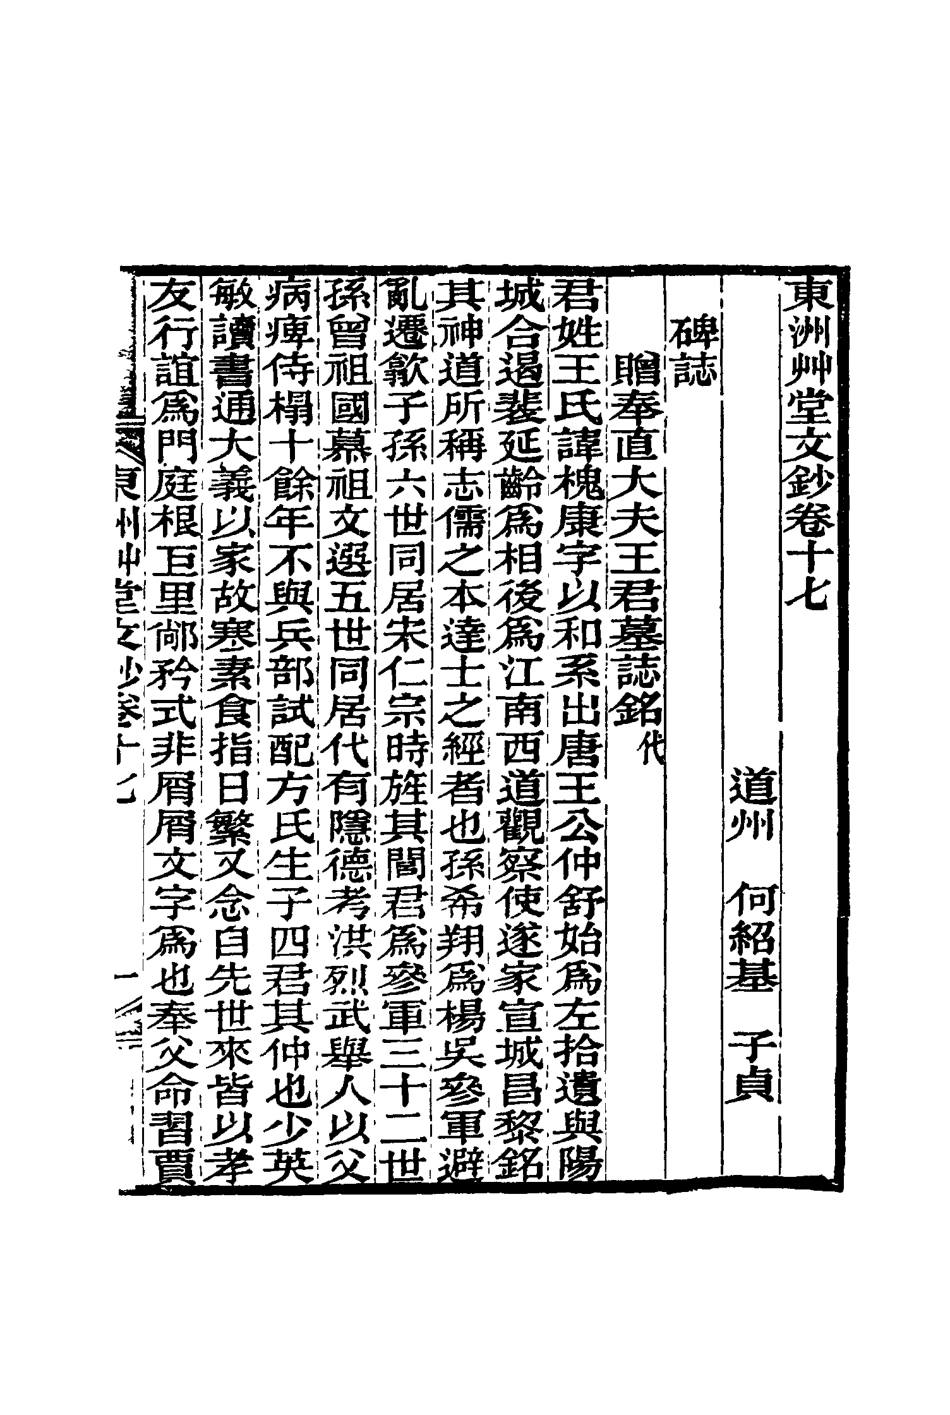 東洲艸堂文鈔卷十七
道州　何紹基　子貞
碑誌
贈奉直大夫王君墓誌銘代
君姓王氏諱槐康字以和系出唐王公仲舒始爲左拾遺與陽
城合遏裴延齡爲相後爲江南西道觀察使遂家宣城昌黎銘
其神道所稱志儒之本達士之經者也孫希翔爲楊吳參軍避
亂遷歙子孫六世同居宋仁宗時旌其閭君爲參軍三十二世
孫曾祖國慕祖文選五世同居代有隱德考洪烈武舉人以父
病痺侍榻十餘年不與兵部試配方氏生子四君其仲也少英
敏讀書通大義以家故寒素食指日繁又念自先世來皆以孝
友行誼爲門庭根㠪里鄰矜式非屑屑文字爲也奉父命習賈
東洲艸堂文鈔卷十七　一